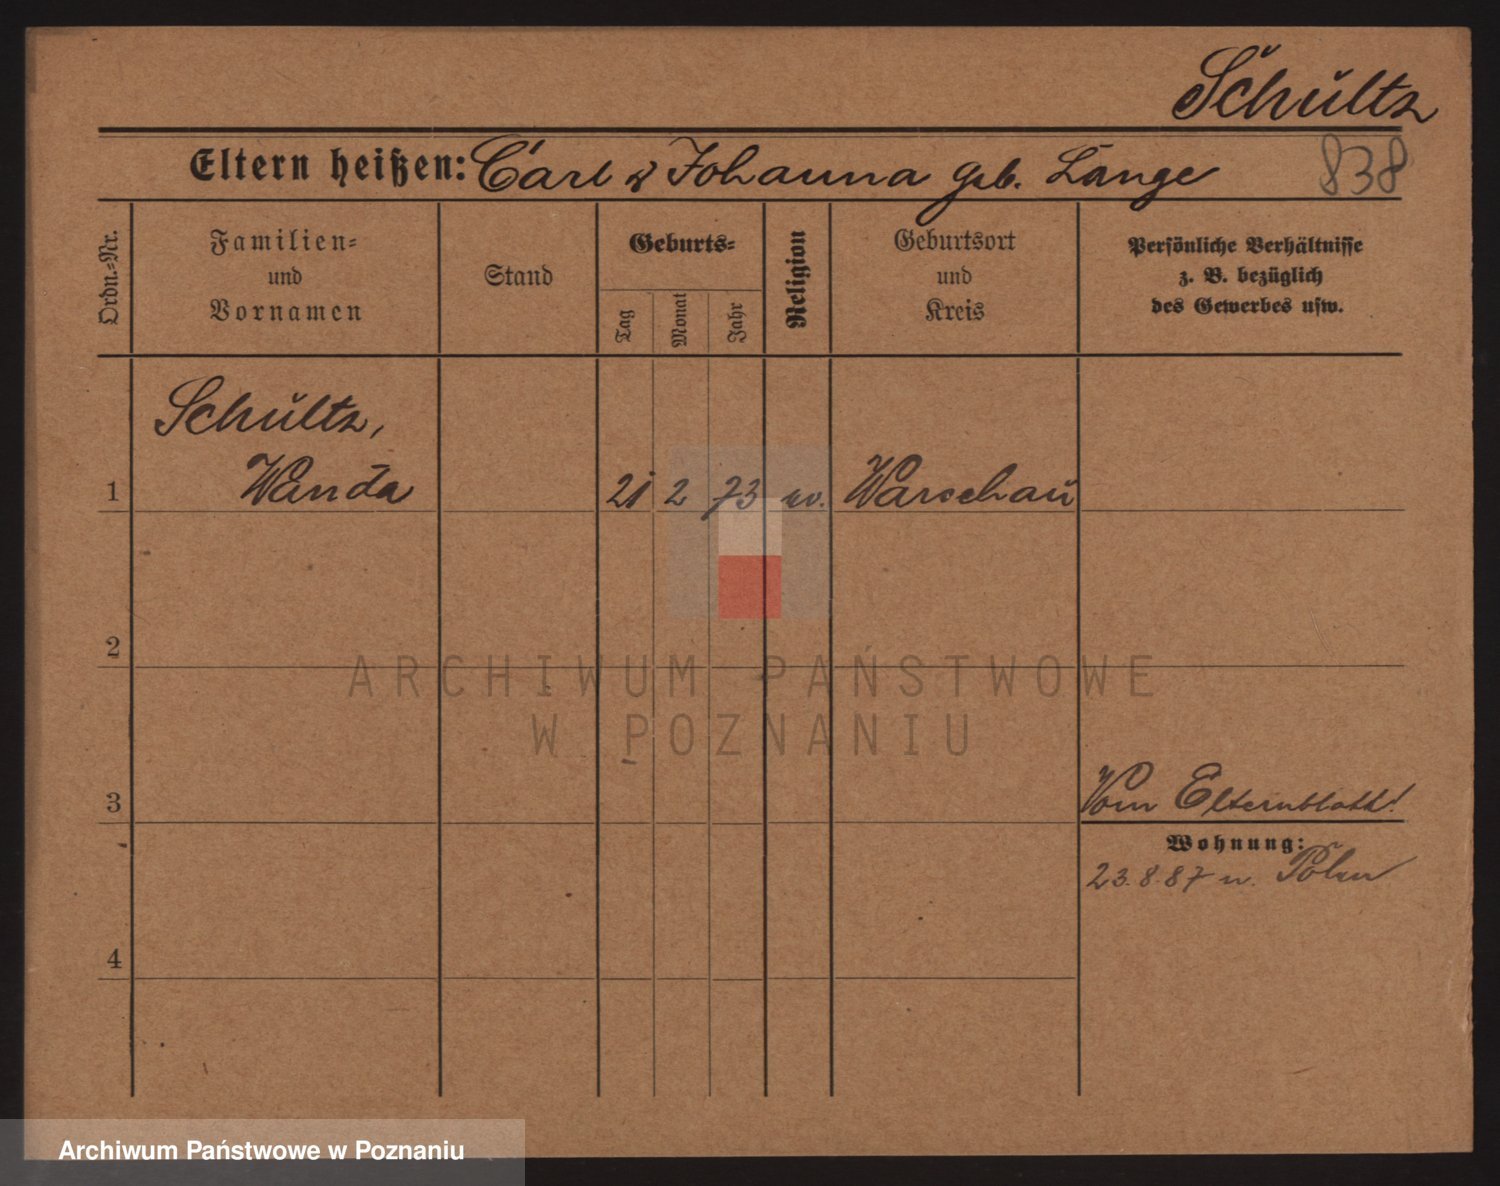 Schultz
Eltern heißen: Carl & Johanna geb. Lange
838
Ordn.-Nr.
Familien-
und
Vornamen
Stand
Geburts-
Tag
Monat
Jahr
Religion
Geburtsort
und
Kreis
Persönliche Verhältnisse
z. B. bezüglich
des Gewerbes usw.
Schultz,
1 Wanda 21 2 73 ev. Warschau
2
ARCHIWUM PAŃSTWOWE
W POZNANIU
3 Vom Elternblatt!
Wohnung:
23.8.87 n. Polen
4
Archiwum Państwowe w Poznaniu